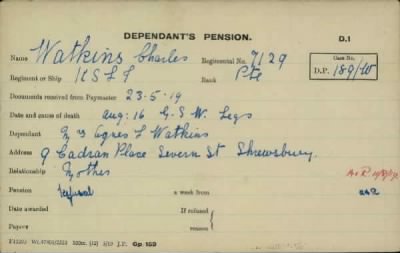 DEPENDANT'S PENSION.
D.1
Name Watkins Charles Regimental No. 7129
Case No.
D.P. 189/W
Regiment or Ship K S L I Rank Pte
Documents received from Paymaster 23-5-19
Date and cause of death Aug: 16 G. S. W. Legs
Dependant Mrs Agnes L Watkins
Address 9 Cadran Place Severn St Shrewsbury.
Relationship Mother
Pension refusal a week from
Date awarded If refused
Papers reason
Gp. 159